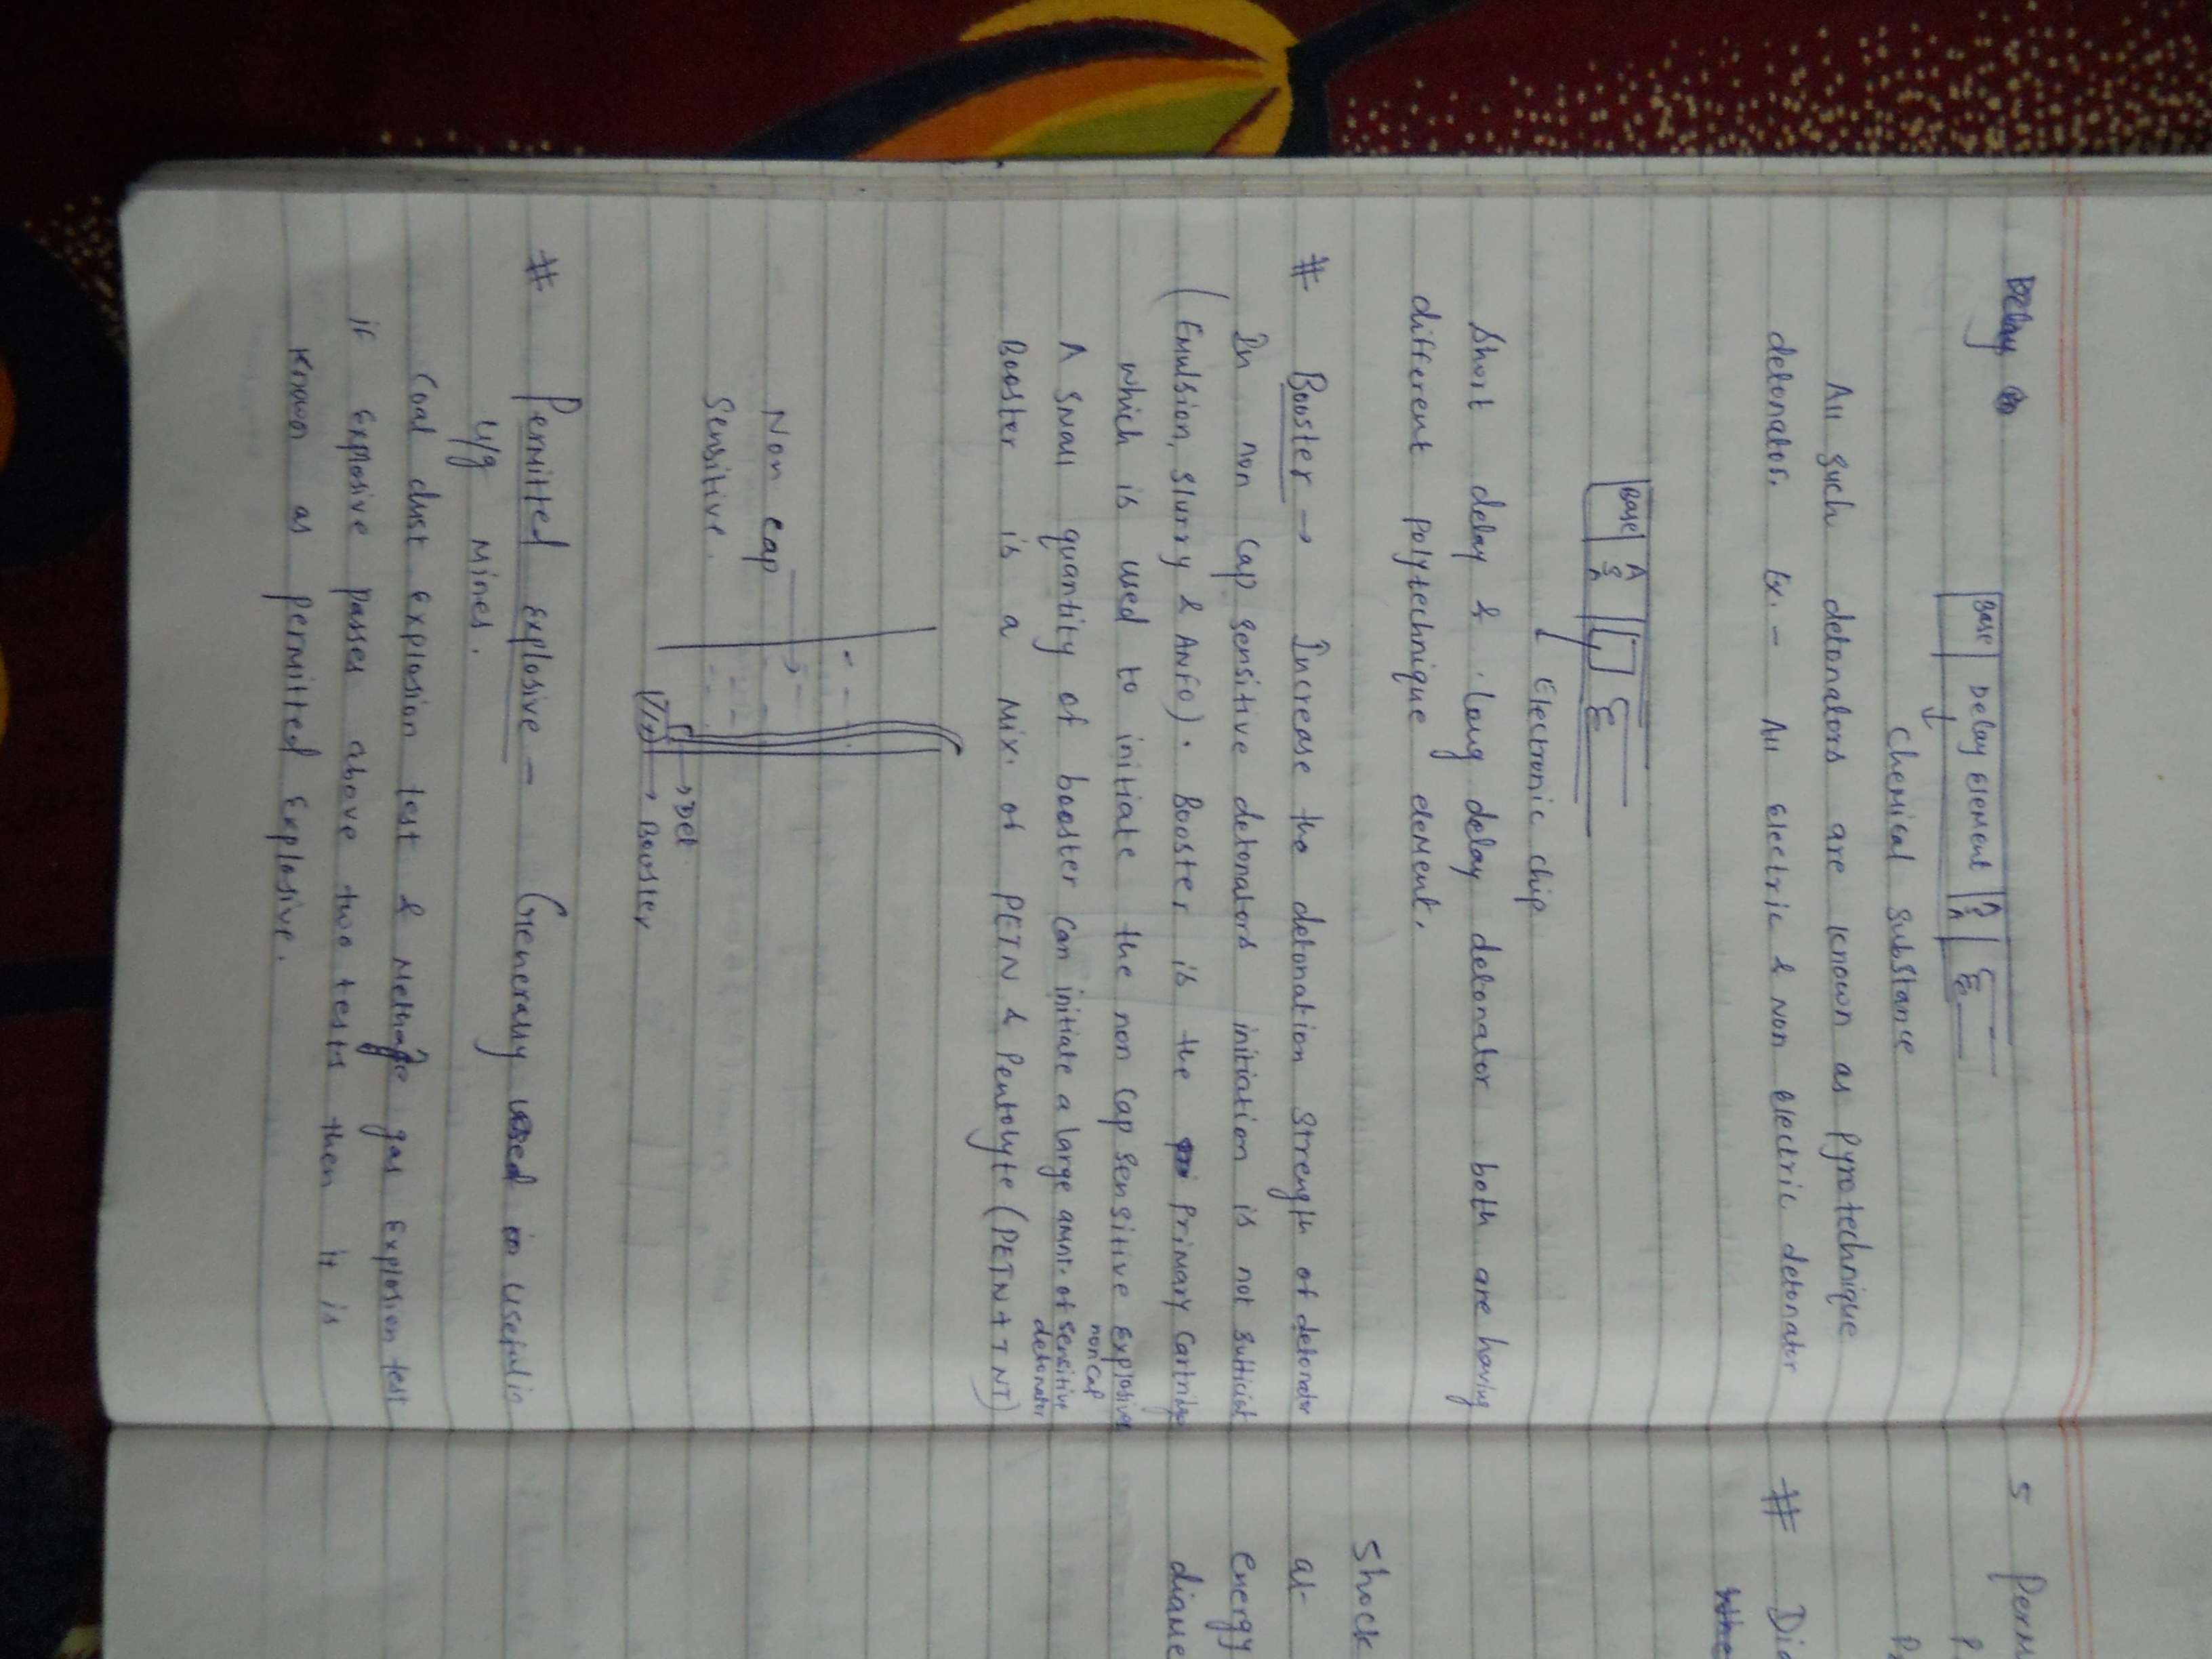 Delay
Base Delay element A S A E
Chemical substance
All such detonators are known as Pyrotechnique
detonator. Ex. - All Electric & Non electric detonator
Base A S A E
Electronic chip
Short delay & long delay detonator both are having
different polytechnique element.
# Booster → Increase the detonation strength of detonator
In non cap sensitive detonators initiation is not sufficint
(Emulsion, Slurry & ANFO). Booster is the Primary Cartridge
which is used to initiate the non cap sensitive explosives
A small quantity of booster can initiate a large amnt. of non cap sensitive detonator
Booster is a mix. of PETN & Pentolyte (PETN + TNT)
Non cap
Sensitive.
→ Det.
→ Booster
# Permitted explosive - Generally used in useful in
U/g Mines.
Coal dust explosion test & Methane gas explosion test
if explosive passes above two tests then it is
known as permitted explosive.
5 Perm
P
# Dia
Shock
at
energy
diame